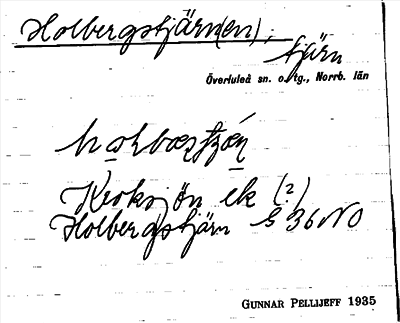 Holbergstjärn(en), tjärn
Överluleå sn. o. tg., Norrb. län
Kroksjön ek (?)
Holbergstjärn S 36 NO
GUNNAR PELLIJEFF 1935